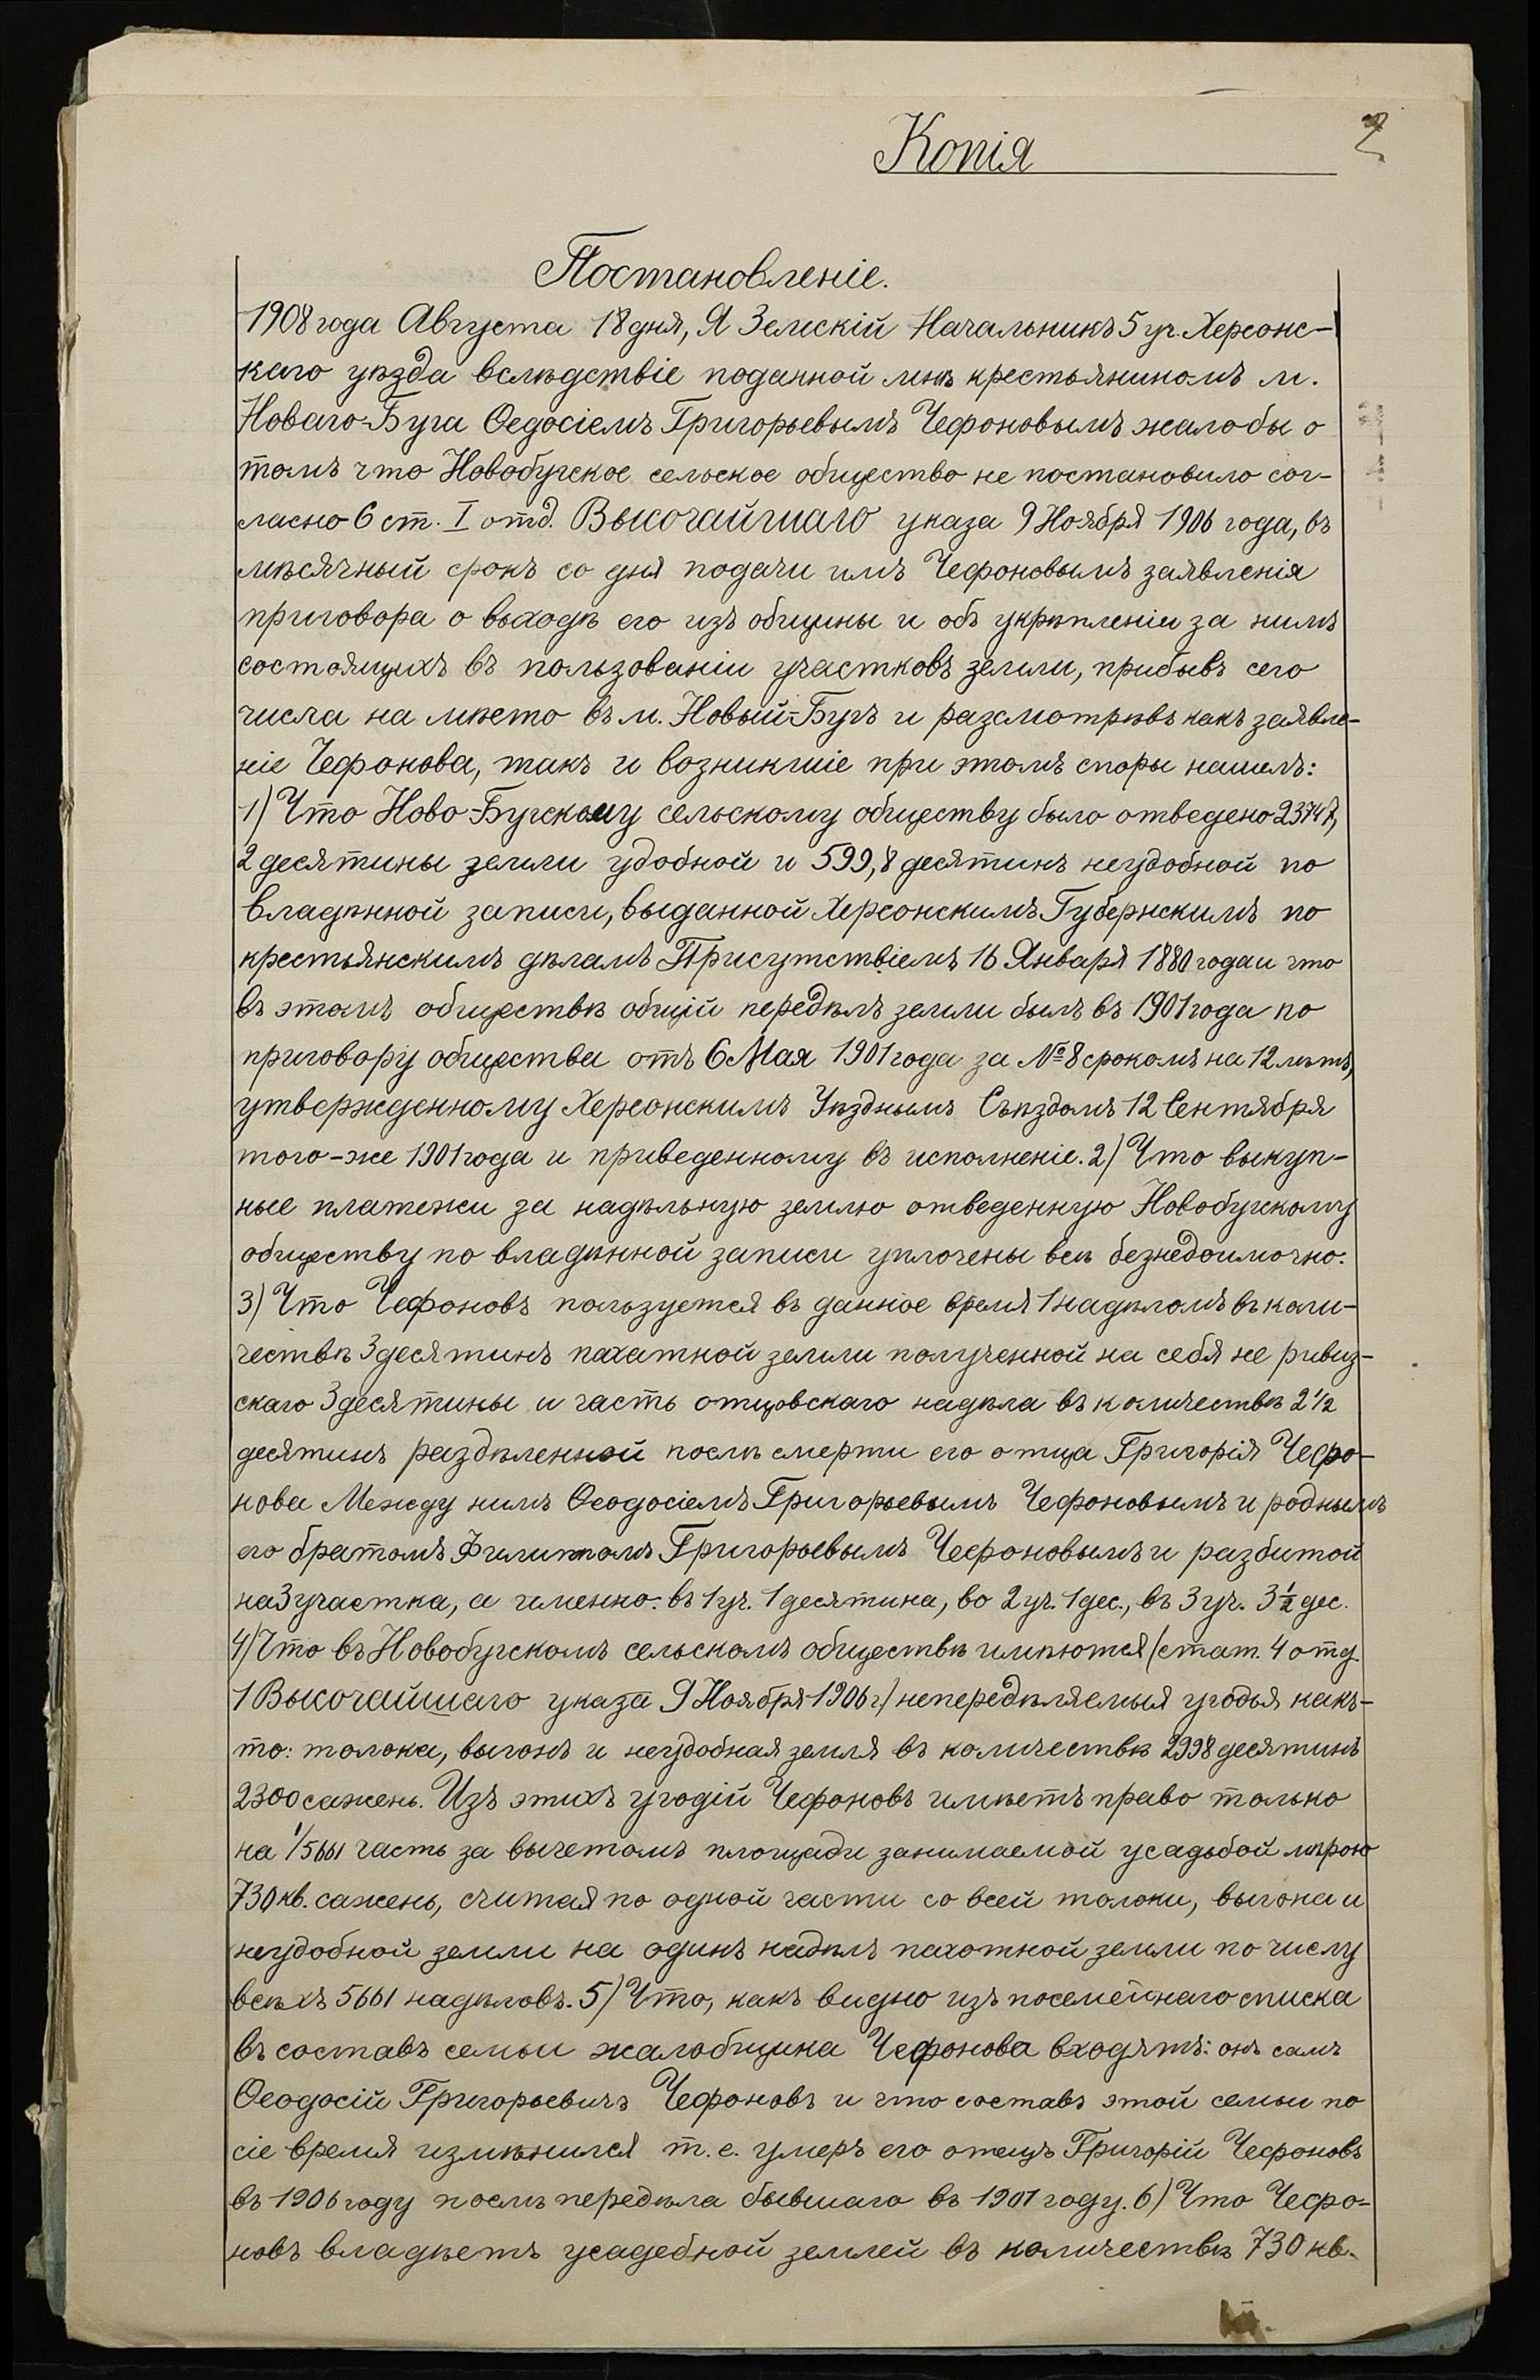 Копія
2
Постановленіе.
1908 года Августа 18 дня, Я Земскій Начальникъ 5 уч. Херсонс-
каго уѣзда вслѣдствіе поданной мнѣ крестьяниномъ м.
Новаго-Буга Ѳедосіемъ Григорьевымъ Чефоновымъ жалобы о
томъ что Новобугское сельское общество не постановило сог-
ласно 6 ст. I отд. Высочайшаго указа 9 Ноября 1906 года, въ
мѣсячный срокъ со дня подачи имъ Чефоновымъ заявленія
приговора о выходѣ его изъ общины и объ укрѣпленіи за нимъ
состоящихъ въ пользованіи участковъ земли, прибывъ сего
числа на мѣсто въ м. Новый-Бугъ и разсмотрѣвъ какъ заявле-
ніе Чефонова, такъ и возникшіе при этомъ споры нашелъ:
1) Что Ново-Бугскому сельскому обществу было отведено 23747,
2 десятины земли удобной и 599,8 десятинъ неудобной по
владѣнной записи, выданной Херсонскимъ Губернскимъ по
крестьянскимъ дѣламъ Присутствіемъ 16 Января 1880 года и что
въ этомъ обществѣ общій передѣлъ земли былъ въ 1901 года по
приговору общества отъ 6 Мая 1901 года за № 8 срокомъ на 12 лѣтъ,
утвержденному Херсонскимъ Уѣзднымъ Съѣздомъ 12 Сентября
того-же 1901 года и приведенному въ исполненіе. 2) Что выкуп-
ные платежи за надѣльную землю отведенную Новобугскому
обществу по владѣнной записи уплочены всѣ безнедоимочно.
3) Что Чефоновъ пользуется въ данное время 1 надѣломъ въ коли-
чествѣ 3 десятинъ пахатной земли полученной на себя не ривиз-
скаго 3 десятины и часть отцовскаго надѣла въ количествѣ 2 1/2
десятинъ раздѣленной послѣ смерти его отца Григорія Чефо-
нова Между нимъ Ѳеодосіемъ Григорьевымъ Чефоновымъ и роднымъ
его братомъ Филиппомъ Григорьевымъ Чефоновымъ и разбитой
на 3 участка, а именно: въ 1 уч. 1 десятина, во 2 уч. 1 дес., въ 3 уч. 3 1/2 дес.
4) Что въ Новобугскомъ сельскомъ обществѣ имѣются (стат. 4 отд.
1 Высочайшаго указа 9 Ноября 1906 г.) непередѣляемыя угодья какъ-
то: толока, выгонъ и неудобная земля въ количествѣ 2998 десятинъ
2300 сажень. Изъ этихъ угодій Чефоновъ имѣетъ право только
на 1/5661 часть за вычетомъ площади занимаемой усадьбой мѣрою
730 кв. сажень, считая по одной части со всей толоки, выгона и
неудобной земли на одинъ надѣлъ пахотной земли по числу
всѣхъ 5661 надѣловъ. 5) Что, какъ видно изъ посемейнаго списка
въ составъ семьи жалобщика Чефонова входятъ: онъ самъ
Ѳеодосій Григорьевичъ Чефоновъ и что составъ этой семьи по
сіе время измѣнился т. е. умеръ его отецъ Григорій Чефоновъ
въ 1906 году послѣ передѣла бывшаго въ 1901 году. 6) Что Чефо-
новъ владѣетъ усадебной землей въ количествѣ 730 кв.